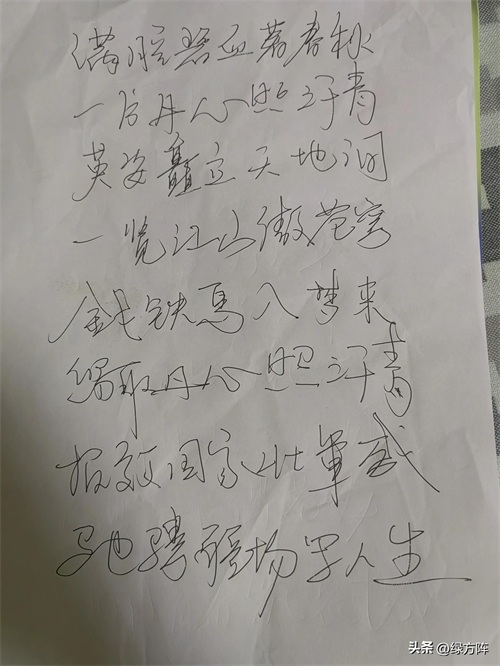 满腔碧血著春秋
一片丹心照汗青
英姿矗立天地间
一览江山傲苍穹
金戈铁马入梦来
留取丹心照汗青
报效国家壮军威
驰骋疆场写人生
头条 @绿方阵